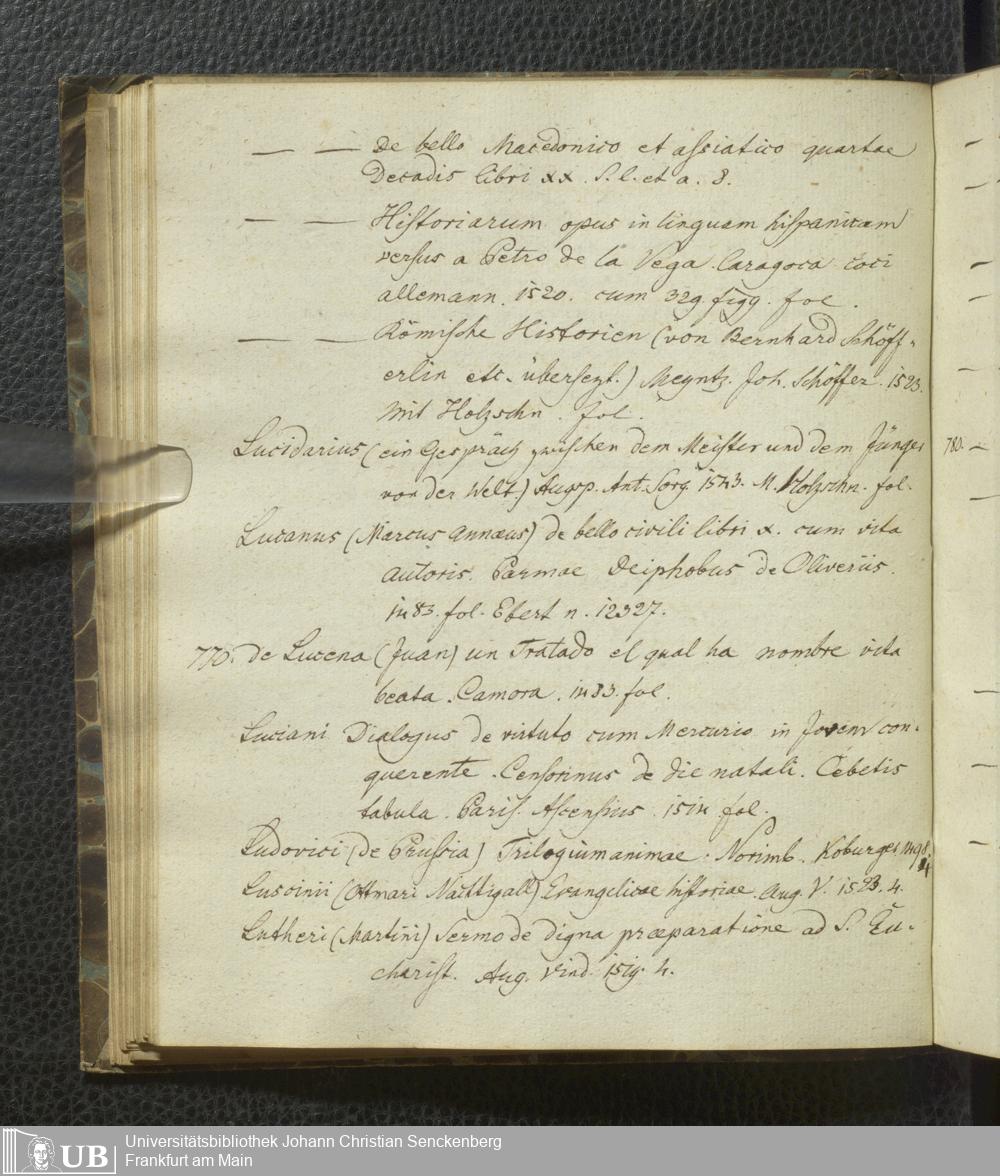 — — De bello Macedonico et assiatico quartae
Decadis libri xx. S. l. et a. 8.
— — Historiarum opus in linguam hispanicam
versus a Petro de la Vega. Caragoca coci
allemann. 1520. cum 329. figg. fol.
— — Römische Historien (von Bernhard Schöff-
erlin etc. übersezt.) Meyntz. Joh. Schöffer. 1523.
mit Holzschn. fol.
Lucidarius (ein Gespräch zwischen dem Meister und dem Jünger
von der Welt.) Augsp. Ant. Sorg. 1543. M. Holzschn. fol.
Lucanus (Marcus Annaeus) de bello civili libri x. cum vita
autoris. Parmae Deiphobus de Oliveriis.
1483. fol. Ebert n. 12327.
770. de Lucena (Juan) un Tratado el qual ha nombre vita
beata. Camora. 1483. fol.
Luciani Dialogus de virtuto cum Mercurio in Jovem con-
querente. Censorinus de die natali. Cebetis
tabula. Paris. Ascensius. 1514. fol.
Ludovici (de Prussia) Trilogium animae. Norimb. Koburger 1498.
4
Luscinii (Ottmari Nachtigall) Evangelicae historiae. Aug. V. 1523. 4.
Lutheri (Martini) Sermo de digna praeparatione ad S. Eu-
charist. Aug. Vind. 1519. 4.
780. —
UB
Universitätsbibliothek Johann Christian Senckenberg
Frankfurt am Main